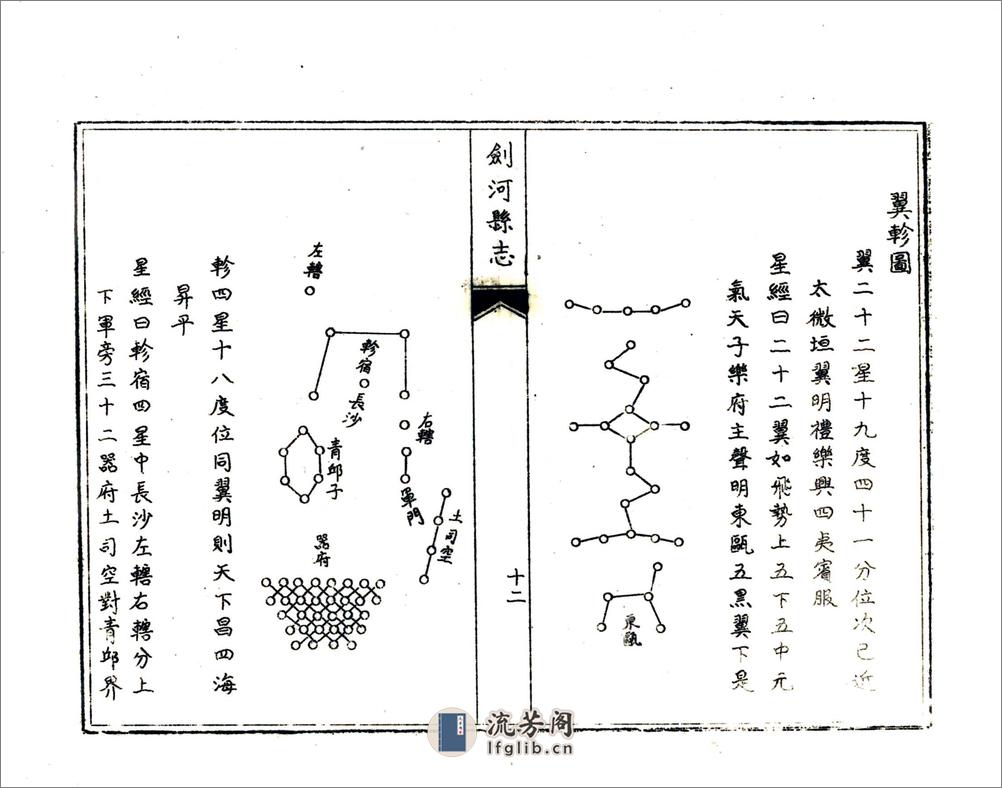 翼軫圖
翼二十二星十九度四十一分位次已近
太微垣翼明禮樂興四夷賓服
星經曰二十二翼如飛勢上五下五中元
氣天子樂府主聲明東甌五黑翼下是
東甌
劍河縣志
十二
左轄
軫宿
長沙
右轄
軍門
土司空
青邱子
器府
軫四星十八度位同翼明則天下昌四海
昇平
星經曰軫宿四星中長沙左轄右轄分上
下軍旁三十二器府土司空對青邱界
流芳阁
lfglib.cn